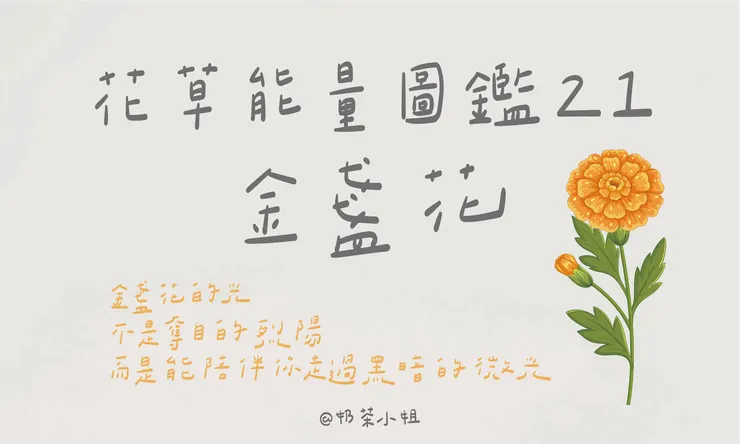 花草能量圖鑑21
金盞花
金盞花的光
不是奪目的烈陽
而是能陪伴你走過黑暗的微光
@奶茶小姐